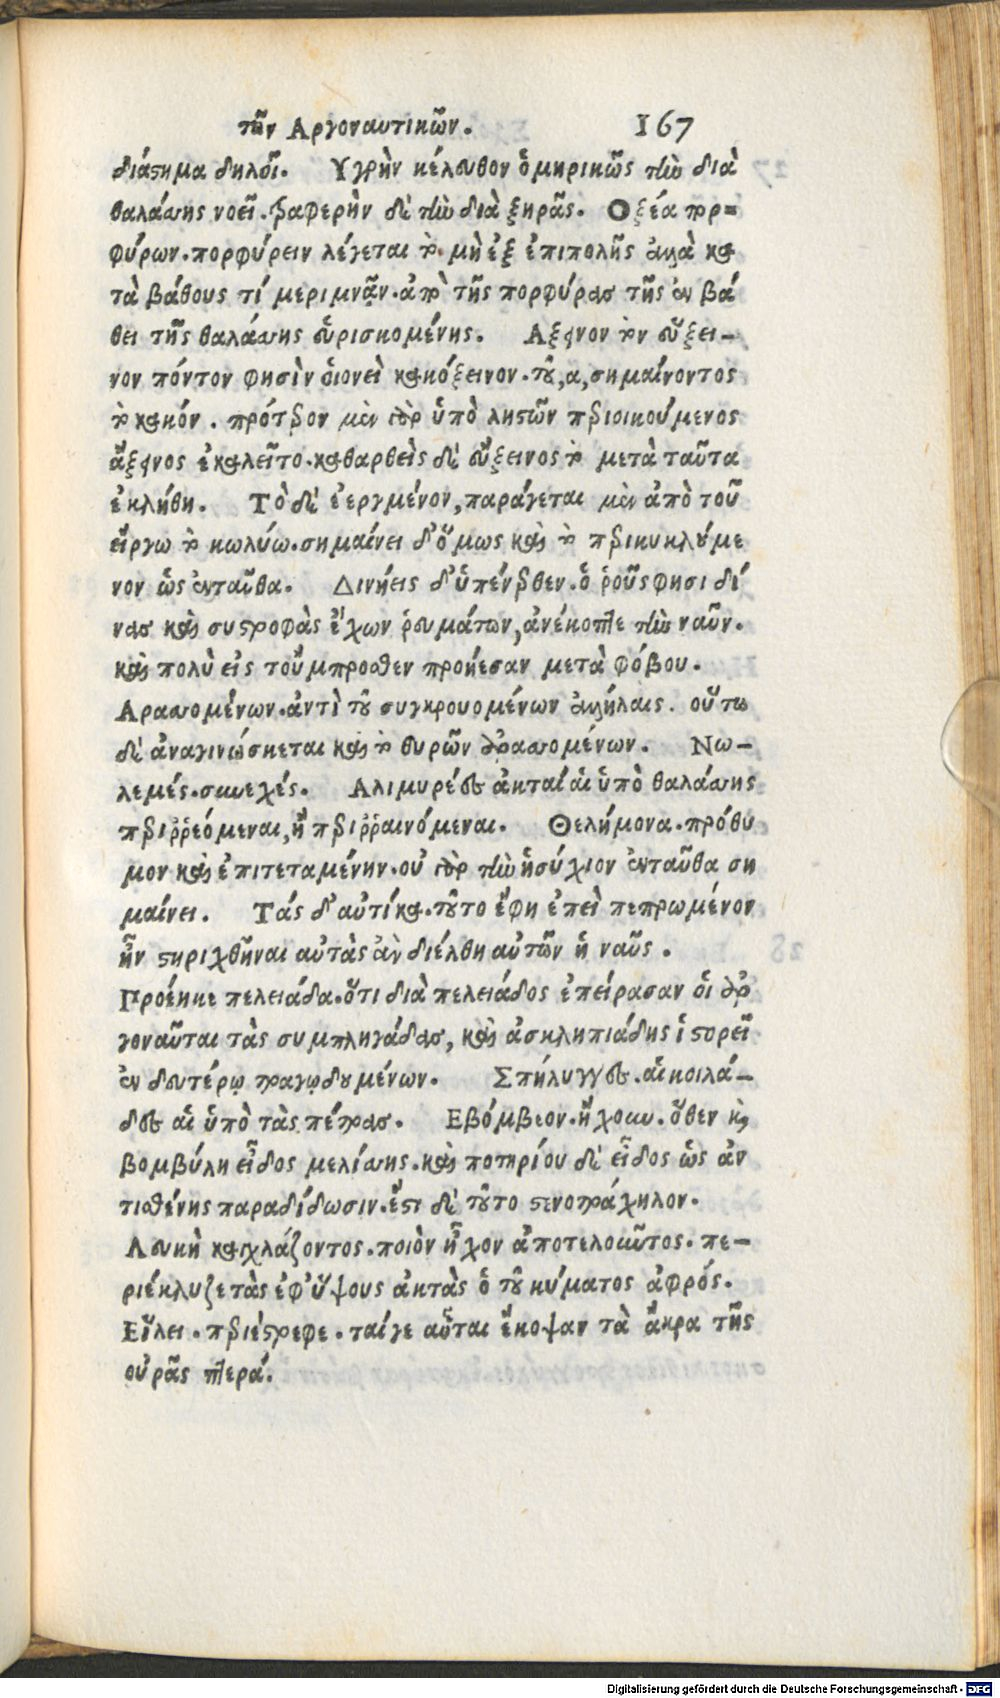 τῶν Αργοναυτικῶν. 167
διάστημα δηλοῖ. Υγρὴν κέλευθον ὁμηρικῶς τὴν διὰ
θαλάσσης νοεῖ. τραφερὴν δὲ τὴν διὰ ξηρᾶς. Οξέα πορ=
φύρων. πορφύρειν λέγεται τὸ μὴ ἐξ ἐπιπολῆς ἀλλὰ κα
τὰ βάθους τί μεριμνᾷν. ἀπὸ τῆς πορφύρας τῆς ἐν βά
θει τῆς θαλάσσης εὑρισκομένης. Αξεινον τὸν εὔξει-
νον πόντον φησὶν οἱονεὶ κακόξεινον. τοῦ, α, σημαίνοντος
τὸ κακόν. πρότερον μὲν γὰρ ὑπὸ λῃστῶν περιοικούμενος
ἄξεινος ἐκαλεῖτο. καθαρθεὶς δὲ εὔξεινος τὸ μετὰ ταῦτα
ἐκλήθη. Τὸ δὲ ἐεργμένον, παράγεται μὲν ἀπὸ τοῦ
εἴργω τὸ κωλύω. σημαίνει δ' ὅμως καὶ τὸ περικυκλούμε
νον ὡς ἐνταῦθα. Δινήεις δ' ὑπένερθεν. ὁ ῥοῦς φησι δί
νας καὶ συστροφὰς ἔχων ῥευμάτων, ἀνέκοπτε τὴν ναῦν.
καὶ πολὺ εἰς τοὔμπροσθεν προῄεσαν μετὰ φόβου.
Αρασσομένων. ἀντὶ τοῦ συγκρουομένων ἀλλήλαις. οὕτω
δὲ ἀναγινώσκεται καὶ τὸ θυρῶν ἀρασσομένων. Νω-
λεμές. συνεχές. Αλιμυρέες ἀκταί αἱ ὑπὸ θαλάσσης
περιῤῥεόμεναι, ἢ περιῤῥαινόμεναι. Θελήμονα. πρόθυ
μον καὶ ἐπιτεταμένην. οὐ γὰρ τὴν ἡσύχιον ἐνταῦθα ση
μαίνει. Τάς δ' αὐτίκα. τοῦτο ἔφη ἐπεὶ πεπρωμένον
ἦν στηριχθῆναι αὐτὰς ἂν διέλθη αὐτῶν ἡ ναῦς.
Προέηκε πελειάδα. ὅτι διὰ πελειάδος ἐπείρασαν οἱ ἀρ
γοναῦται τὰς συμπληγάδας, καὶ ἀσκληπιάδης ἱστορεῖ
ἐν δευτέρῳ τραγῳδουμένων. Σπήλυγγες. αἱ κοιλά-
δες αἱ ὑπὸ τὰς πέτρας. Εβόμβεον. ἤχουν. ὅθεν καὶ
βομβύλη εἶδος μελίσσης. καὶ ποτηρίου δὲ εἶδος ὡς ἀν
τισθένης παραδίδωσιν. ἔστι δὲ τοῦτο στενοτράχηλον.
Λευκὴ καχλάζοντος. ποιὸν ἦχον ἀποτελοῦντος. πε-
ριέκλυζε τὰς ἐφ' ὕψους ἀκτὰς ὁ τοῦ κύματος ἀφρός.
Εἴλει. περιέστρεφε. ταίγε αὗται ἔκοψαν τὰ ἄκρα τῆς
οὐρᾶς πτερά.
Digitalisierung gefördert durch die Deutsche Forschungsgemeinschaft - DFG